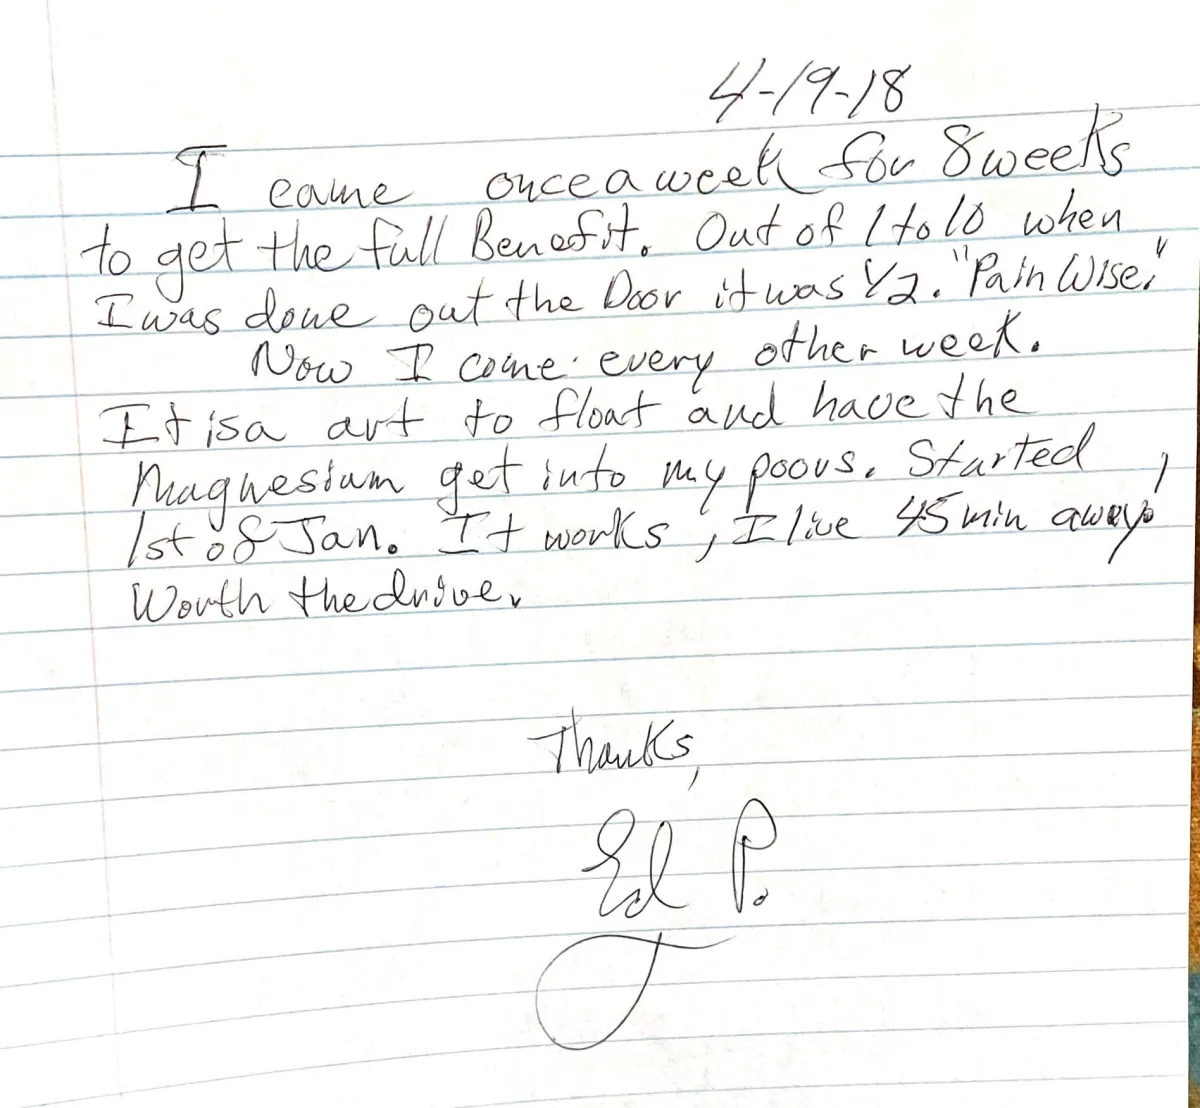 4-19-18
I came once a week for 8 weeks
to get the full Benefit. Out of 1 to 10 when
I was done out the Door it was 1/2. "Pain Wise."
Now I come every other week.
It is a art to float and have the
Magnesium get into my poors. Started
1st of Jan. It works, I live 45 min away!
Worth the drive.
Thanks,
Ed P.